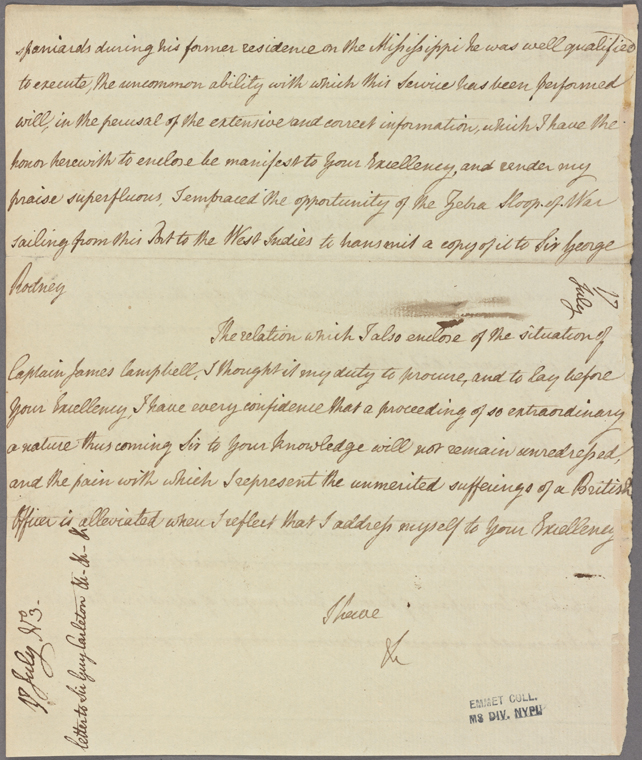 spaniards during his former residence on the Mississippi he was well qualified
to execute, the uncommon ability with which this Service has been performed
will, in the perusal of the extensive and correct information, which I have the
honor herewith to enclose be manifest to Your Excellency, and render my
praise superfluous. I embraced the opportunity of the Zebra Sloop of War
sailing from this Port to the West Indies to transmit a copy of it to Sir George
Rodney
17
July
The relation which I also enclose of the situation of
Captain James Campbell, I thought it my duty to procure, and to lay before
Your Excellency, I have every confidence that a proceeding of so extraordinary
a nature thus coming Sir to Your knowledge will not remain unredressed,
and the pain with which I represent the unmerited sufferings of a British
Officer is alleviated when I reflect that I address myself to Your Excellency
I have
&c
July No 3-
letter to Sir Guy Carleton &c- &c- &c
EMMET COLL.
MS DIV. NYPL